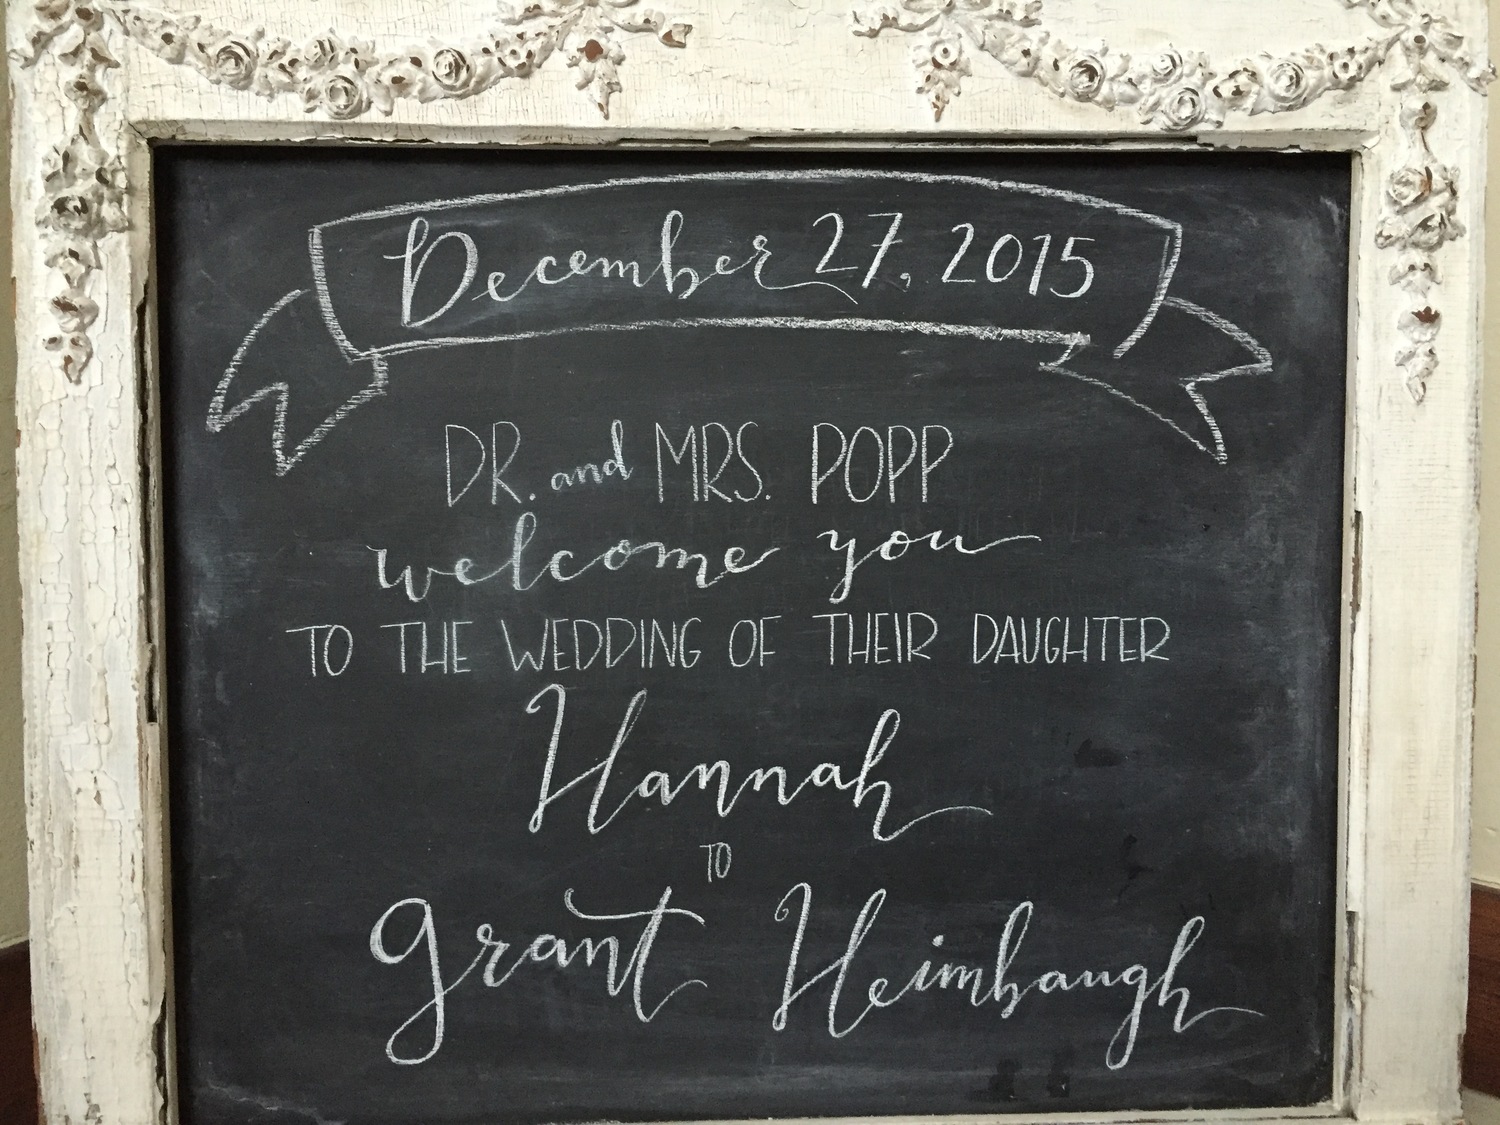 December 27, 2015
DR. and MRS. POPP
welcome you
TO THE WEDDING OF THEIR DAUGHTER
Hannah
TO
Grant Heimbaugh